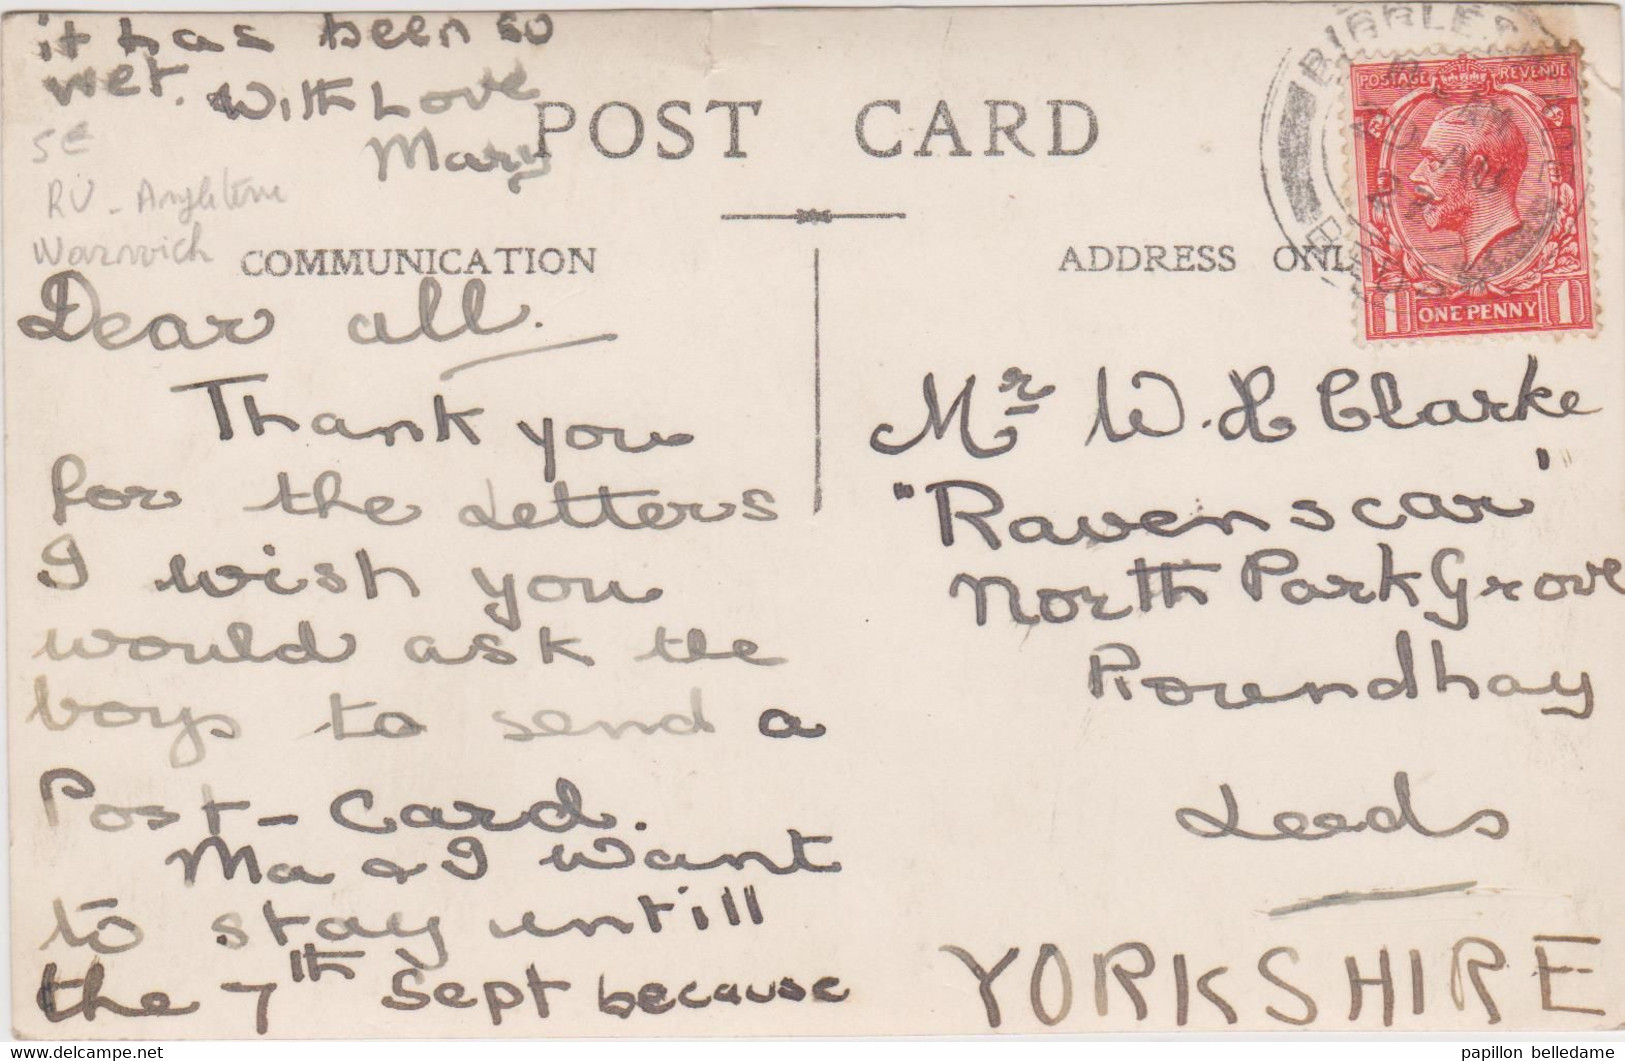 it has been so
wet.
With Love
Mary
POST CARD
5€
RU - Angleterre
Warwich
COMMUNICATION
Dear all.
Thank you
for the Letters
I wish you
would ask the
boys to send a
Post-Card.
Ma & I want
to stay untill
the 7th Sept because
ADDRESS ONL
POSTAGE REVENUE
1 ONE PENNY 1
Mr W. H Clarke
"Ravenscar"
North Park Grove
Roundhay
Leeds
YORKSHIRE
delcampe.net
papillon belledame